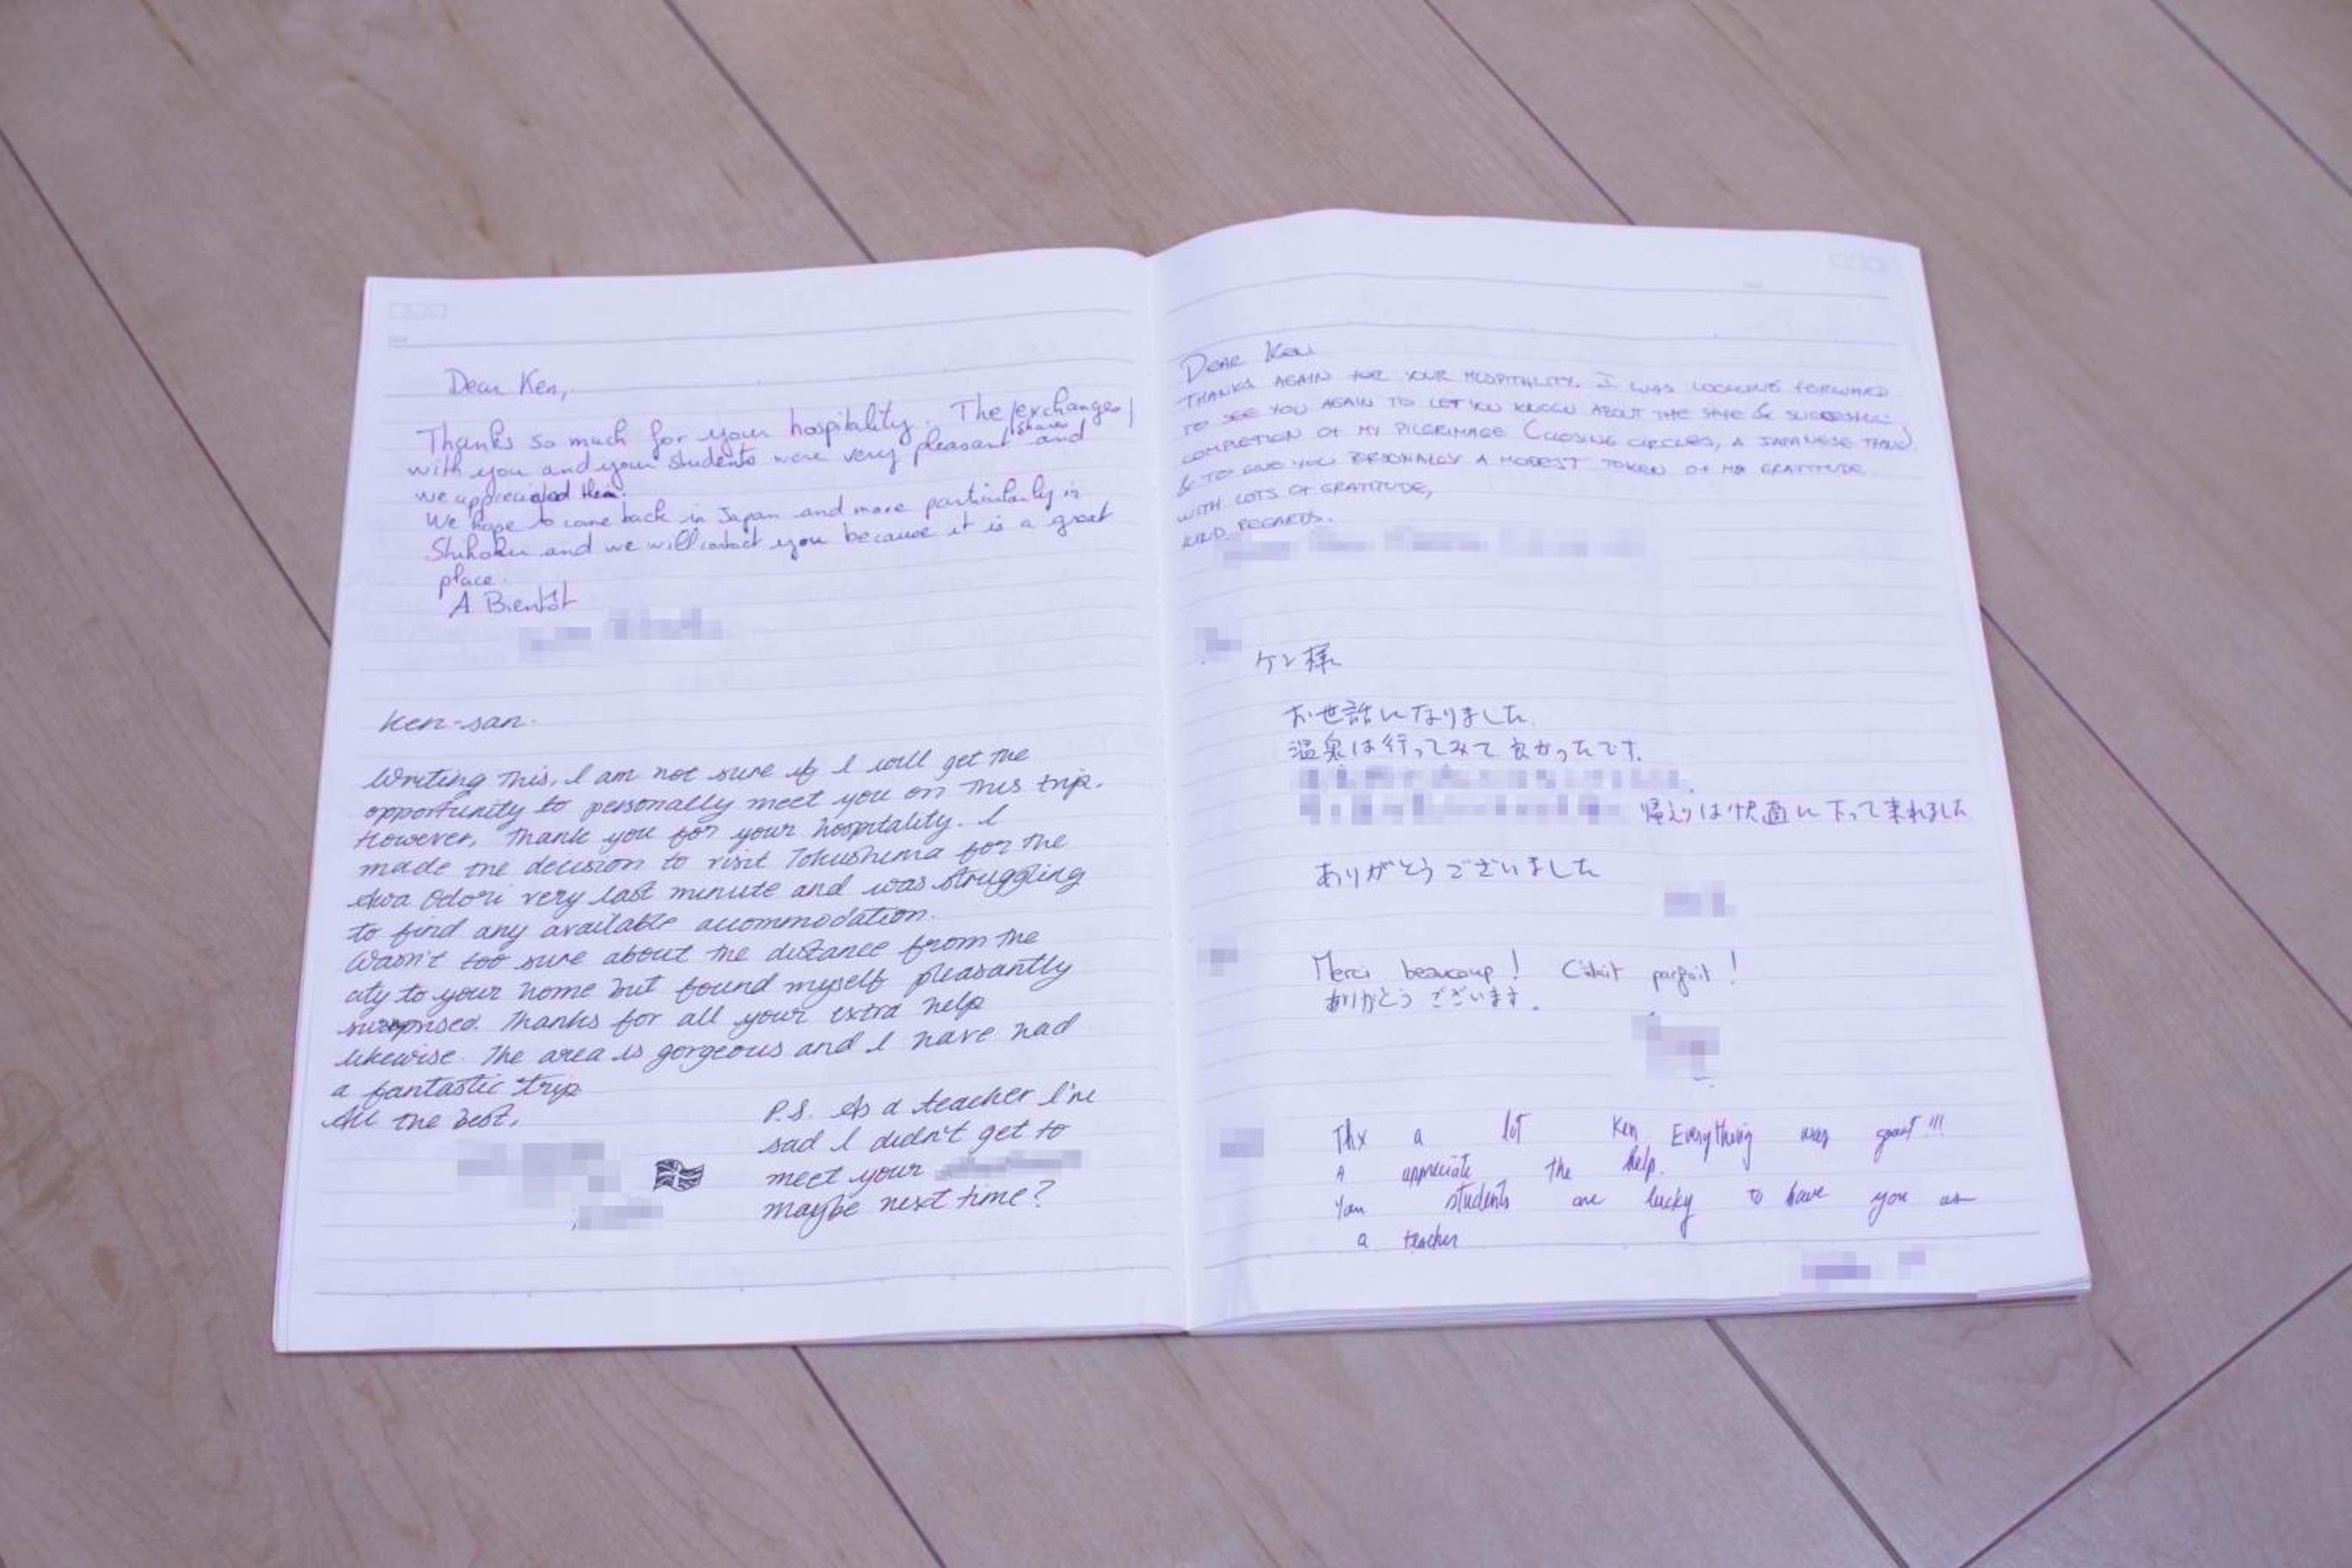 Dear Ken,
Thanks so much for your hospitality. The exchanges
shares
with you and your students were very pleasant and
we appreciated them.
We hope to come back in Japan and more particularly in
Shikoku and we will contact you because it is a great
place.
A Bientôt
Ken-san
Writing this, I am not sure if I will get the
opportunity to personally meet you on this trip.
However, thank you for your hospitality. I
made the decision to visit Tokushima for the
Awa Odori very last minute and was struggling
to find any available accommodation.
Wasn't too sure about the distance from the
city to your home but found myself pleasantly
surprised. Thanks for all your extra help
likewise. The area is gorgeous and I have had
a fantastic trip
All the best,
P.S. As a teacher I'm
sad I didn't get to
meet your
maybe next time?
DEAR KEN
THANKS AGAIN FOR YOUR HOSPITALITY. I WAS LOOKING FORWARD
TO SEE YOU AGAIN TO LET YOU KNOW ABOUT THE SAFE & SUCCESSFUL
COMPLETION OF MY PILGRIMAGE (CLOSING CIRCLES, A JAPANESE THING)
& TO GIVE YOU PERSONALLY A MODEST TOKEN OF MY GRATITUDE
WITH LOTS OF GRATITUDE,
KIND REGARDS.
ケン様
お世話になりました
温泉は行ってみて良かったです.
帰りは快適に下って来れました
ありがとうございました
Merci beaucoup! C'était parfait!
ありがとうございます.
Thx a lot Ken Everything was great!!!
A appreciate the help.
You students are lucky to have you as
a teacher